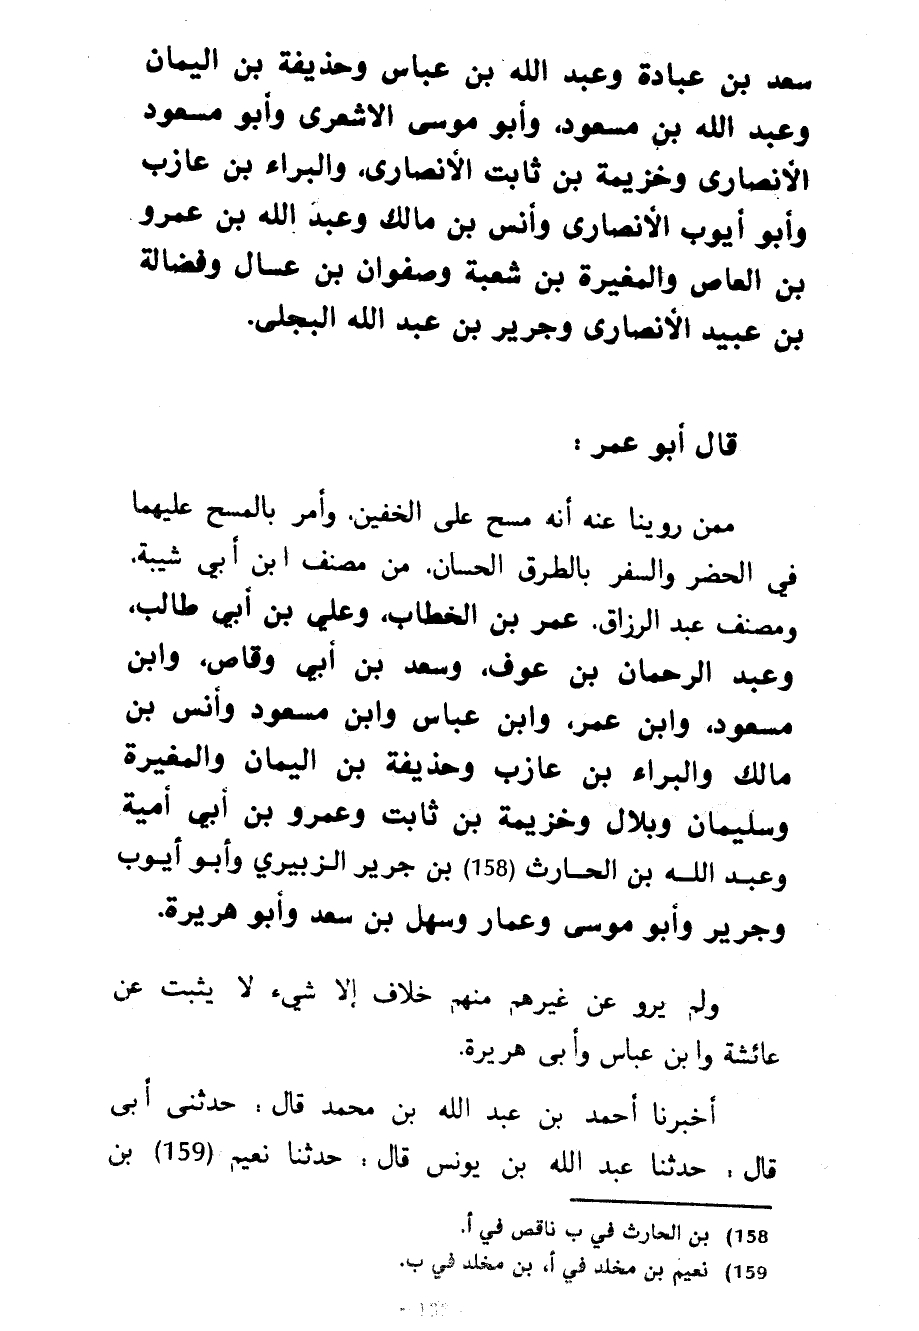 سعد بن عبادة وعبد الله بن عباس وحذيفة بن اليمان
وعبد الله بن مسعود، وأبو موسى الاشعرى وأبو مسعود
الأنصارى وخزيمة بن ثابت الأنصارى، والبراء بن عازب
وأبو أيوب الأنصارى وأنس بن مالك وعبد الله بن عمرو
بن العاص والمغيرة بن شعبة وصفوان بن عسال وفضالة
بن عبيد الأنصارى وجرير بن عبد الله البجلى.
قال أبو عمر :
ممن روينا عنه أنه مسح على الخفين، وأمر بالمسح عليهما
في الحضر والسفر بالطرق الحسان، من مصنف ابن أبي شيبة،
ومصنف عبد الرزاق، عمر بن الخطاب، وعلي بن أبي طالب،
وعبد الرحمان بن عوف، وسعد بن أبي وقاص، وابن
مسعود، وابن عمر، وابن عباس وابن مسعود وأنس بن
مالك والبراء بن عازب وحذيفة بن اليمان والمغيرة
وسليمان وبلال وخزيمة بن ثابت وعمرو بن أبي أمية
وعبد الله بن الحارث (158) بن جرير الزبيري وأبو أيوب
وجرير وأبو موسى وعمار وسهل بن سعد وأبو هريرة.
ولم يرو عن غيرهم منهم خلاف إلا شيء لا يثبت عن
عائشة وابن عباس وأبى هريرة.
أخبرنا أحمد بن عبد الله بن محمد قال : حدثنى أبى
قال : حدثنا عبد الله بن يونس قال : حدثنا نعيم (159) بن
158) بن الحارث في ب ناقص في أ.
159) نعيم بن مخلد في أ، بن مخلد في ب.